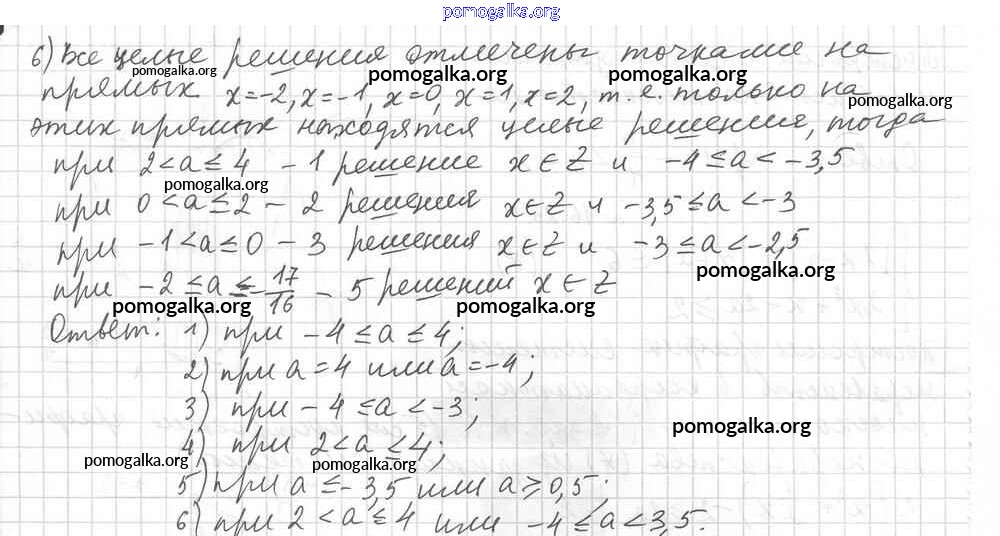 pomogalka.org
6) Все целые решения отмечены точками на
pomogalka.org pomogalka.org pomogalka.org
прямых x=-2, x=-1, x=0, x=1, x=2, т.е. только на
pomogalka.org
этих прямых находятся целые решения, тогда
при 2<a≤4 - 1 решение x∈Z и -4≤a<-3,5
pomogalka.org
при 0<a≤2 - 2 решения x∈Z и -3,5≤a<-3
при -1<a≤0 - 3 решения x∈Z и -3≤a<-2,5
pomogalka.org
при -2≤a≤-17/16 - 5 решений x∈Z
pomogalka.org pomogalka.org
Ответ: 1) при -4≤a≤4;
2) при a=4 или a=-4;
3) при -4≤a<-3;
pomogalka.org
4) при 2<a≤4;
pomogalka.org pomogalka.org
5) при a≤-3,5 или a≥0,5;
6) при 2<a≤4 или -4≤a<3,5.